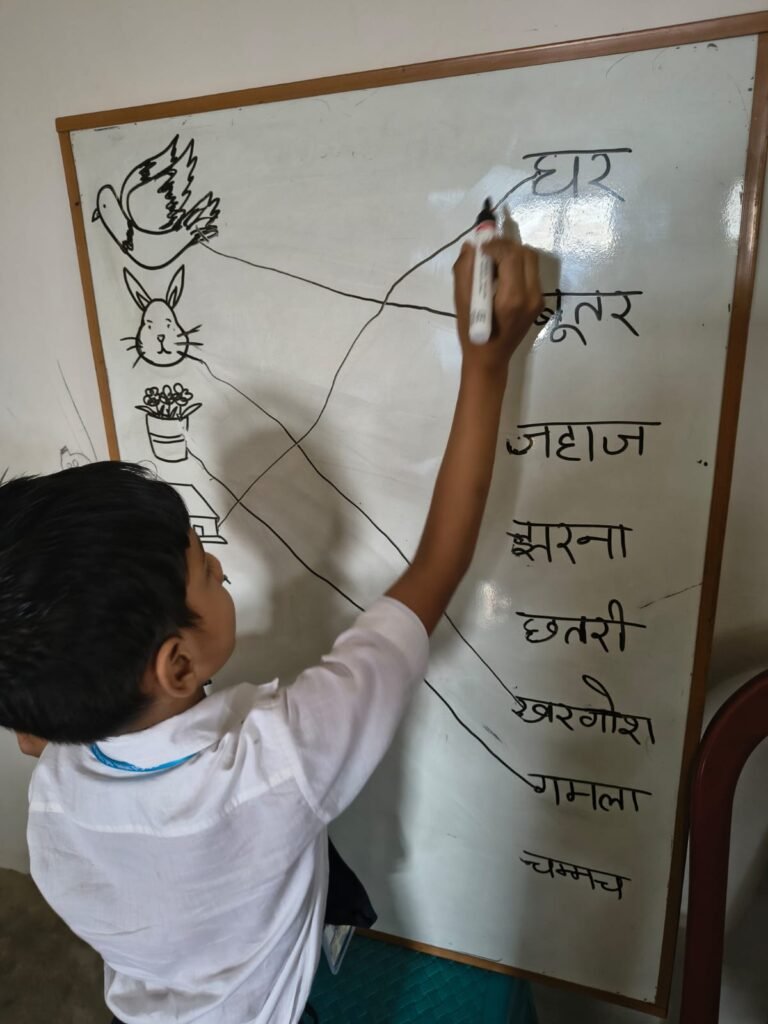 घर
बूतर
जहाज
झरना
छतरी
खरगोश
गमला
चम्मच